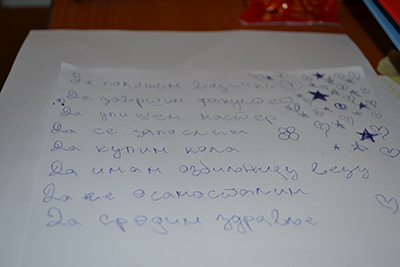 Да положим
Да завршим факултет
Да упишем мастер
Да се запослим
Да купим кола
Да имам озбиљнију везу
Да се осамосталим
Да средим здравље